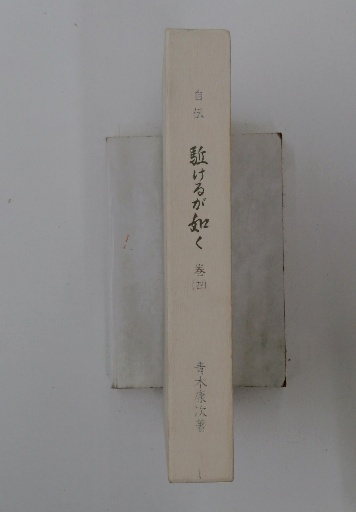 自伝
駈けるが如く
巻(四)
青木康次著